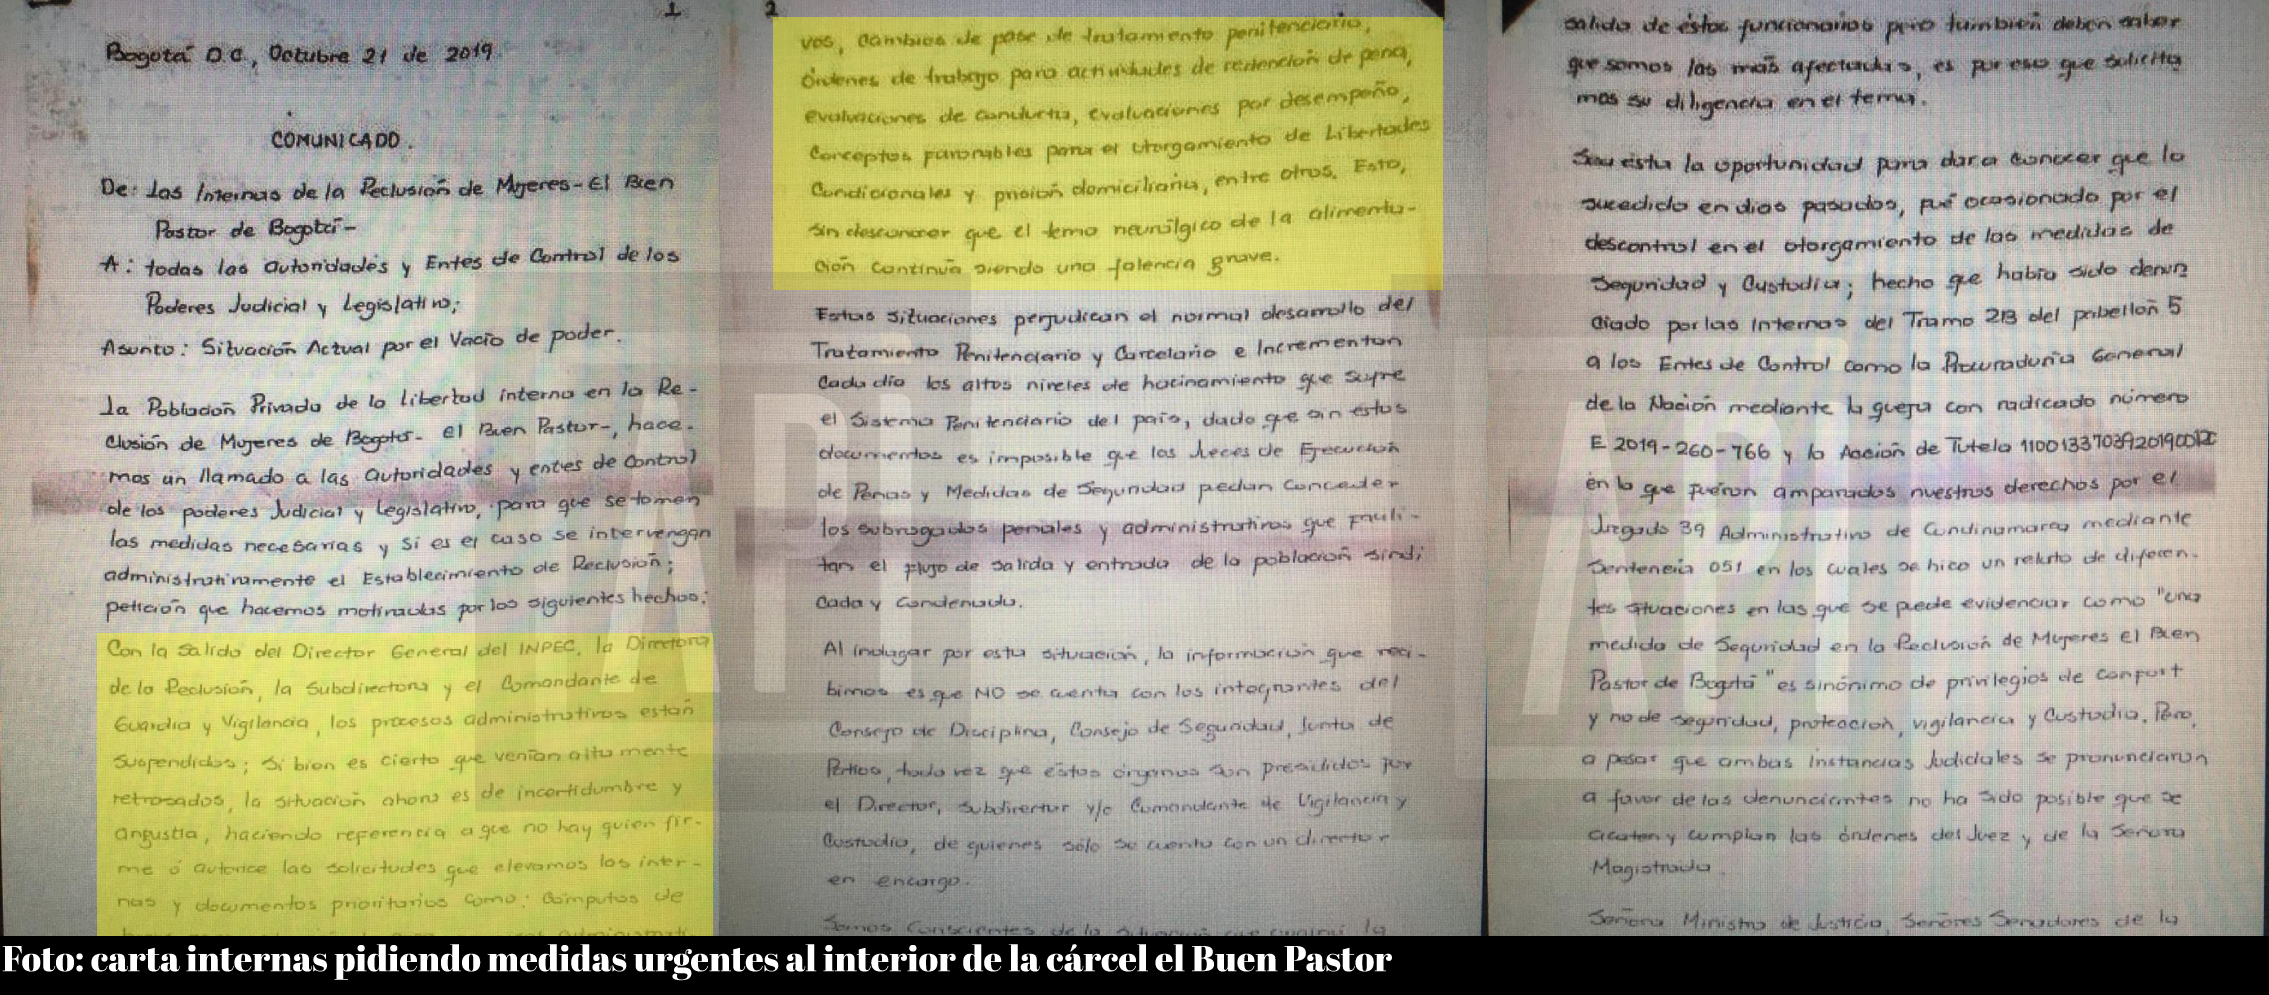 1
Bogotá D.C., Octubre 21 de 2019.
COMUNICADO.
De: las Internas de la Reclusión de Mujeres-El Buen
Pastor de Bogotá-
A: todas las autoridades y Entes de Control de los
Poderes Judicial y Legislativo;
Asunto: Situación Actual por el Vacío de poder.
La Población Privada de la libertad interna en la Re-
clusión de Mujeres de Bogotá- el Buen Pastor-, hace-
mos un llamado a las autoridades y entes de control
de los poderes Judicial y Legislativo, para que se tomen
las medidas necesarias y si es el caso se intervengan
administrativamente el Establecimiento de Reclusión;
petición que hacemos motivadas por los siguientes hechos:
Con la salida del Director General del INPEC, la Directora
de la Reclusión, la Subdirectora y el Comandante de
Guardia y Vigilancia, los procesos administrativos están
suspendidos; si bien es cierto que venían altamente
retrasados, la situación ahora es de incertidumbre y
angustia, haciendo referencia a que no hay quien fir-
me ó autorice las solicitudes que elevamos las inter-
nas y documentos prioritarios como: Cómputos de
2
vos, cambios de fase de tratamiento penitenciario,
órdenes de trabajo para actividades de redención de pena,
evaluaciones de conducta, evaluaciones por desempeño,
Conceptos favorables para el otorgamiento de Libertades
Condicionales y prisión domiciliaria, entre otros. Esto,
sin desconocer que el tema neurálgico de la alimenta-
ción continúa siendo una falencia grave.
Estas situaciones perjudican el normal desarrollo del
Tratamiento Penitenciario y Carcelario e Incrementan
Cada día los altos niveles de hacinamiento que sufre
el Sistema Penitenciario del país, dado que sin estos
documentos es imposible que los Jueces de Ejecución
de Penas y Medidas de Seguridad puedan Conceder
los subrogados penales y administrativos que facili-
tan el flujo de salida y entrada de la población sindi
cada y condenada.
Al indagar por esta situación, la información que reci-
bimos es que NO se cuenta con los integrantes del
Consejo de Disciplina, Consejo de Seguridad, Junta de
Patios, toda vez que estos órganos son presididos por
el Director, Subdirector y/o Comandante de Vigilancia y
Custodia, de quienes sólo se cuenta con un director
en encargo.
Somos Conscientes de la situación que
salida de éstos funcionarios pero también deben saber
que somos las más afectadas, es por eso que solicita
mos su diligencia en el tema.
Sea esta la oportunidad para dar a conocer que lo
sucedido en días pasados, fué ocasionado por el
descontrol en el otorgamiento de las medidas de
Seguridad y Custodia; hecho que había sido denun
ciado por las Internas del Tramo 2B del pabellón 5
a los Entes de Control como la Procuraduría General
de la Nación mediante la queja con radicado número
E 2019-260-766 y la Acción de Tutela
en la que fueron amparados nuestros derechos por el
Juzgado 39 Administrativo de Cundinamarca mediante
Sentencia 051 en los cuales se hizo un relato de diferen-
tes situaciones en las que se puede evidenciar como "una
medida de Seguridad en la Reclusión de Mujeres el Buen
Pastor de Bogotá" es sinónimo de privilegios de confort
y no de seguridad, protección, vigilancia y Custodia. Pero,
a pesar que ambas instancias Judiciales se pronunciaron
a favor de las denunciantes no ha sido posible que se
acaten y cumplan las órdenes del Juez y de la Señora
Magistrada.
Señora Ministra de Justicia, Señores Senadores de la
Foto: carta internas pidiendo medidas urgentes al interior de la cárcel el Buen Pastor